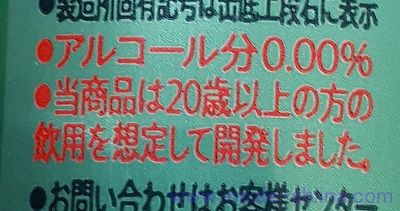 ●製造所固有記号は缶底上段右に表示
●アルコール分0.00%
●当商品は20歳以上の方の
飲用を想定して開発しました。
●お問い合わせはお客様センター